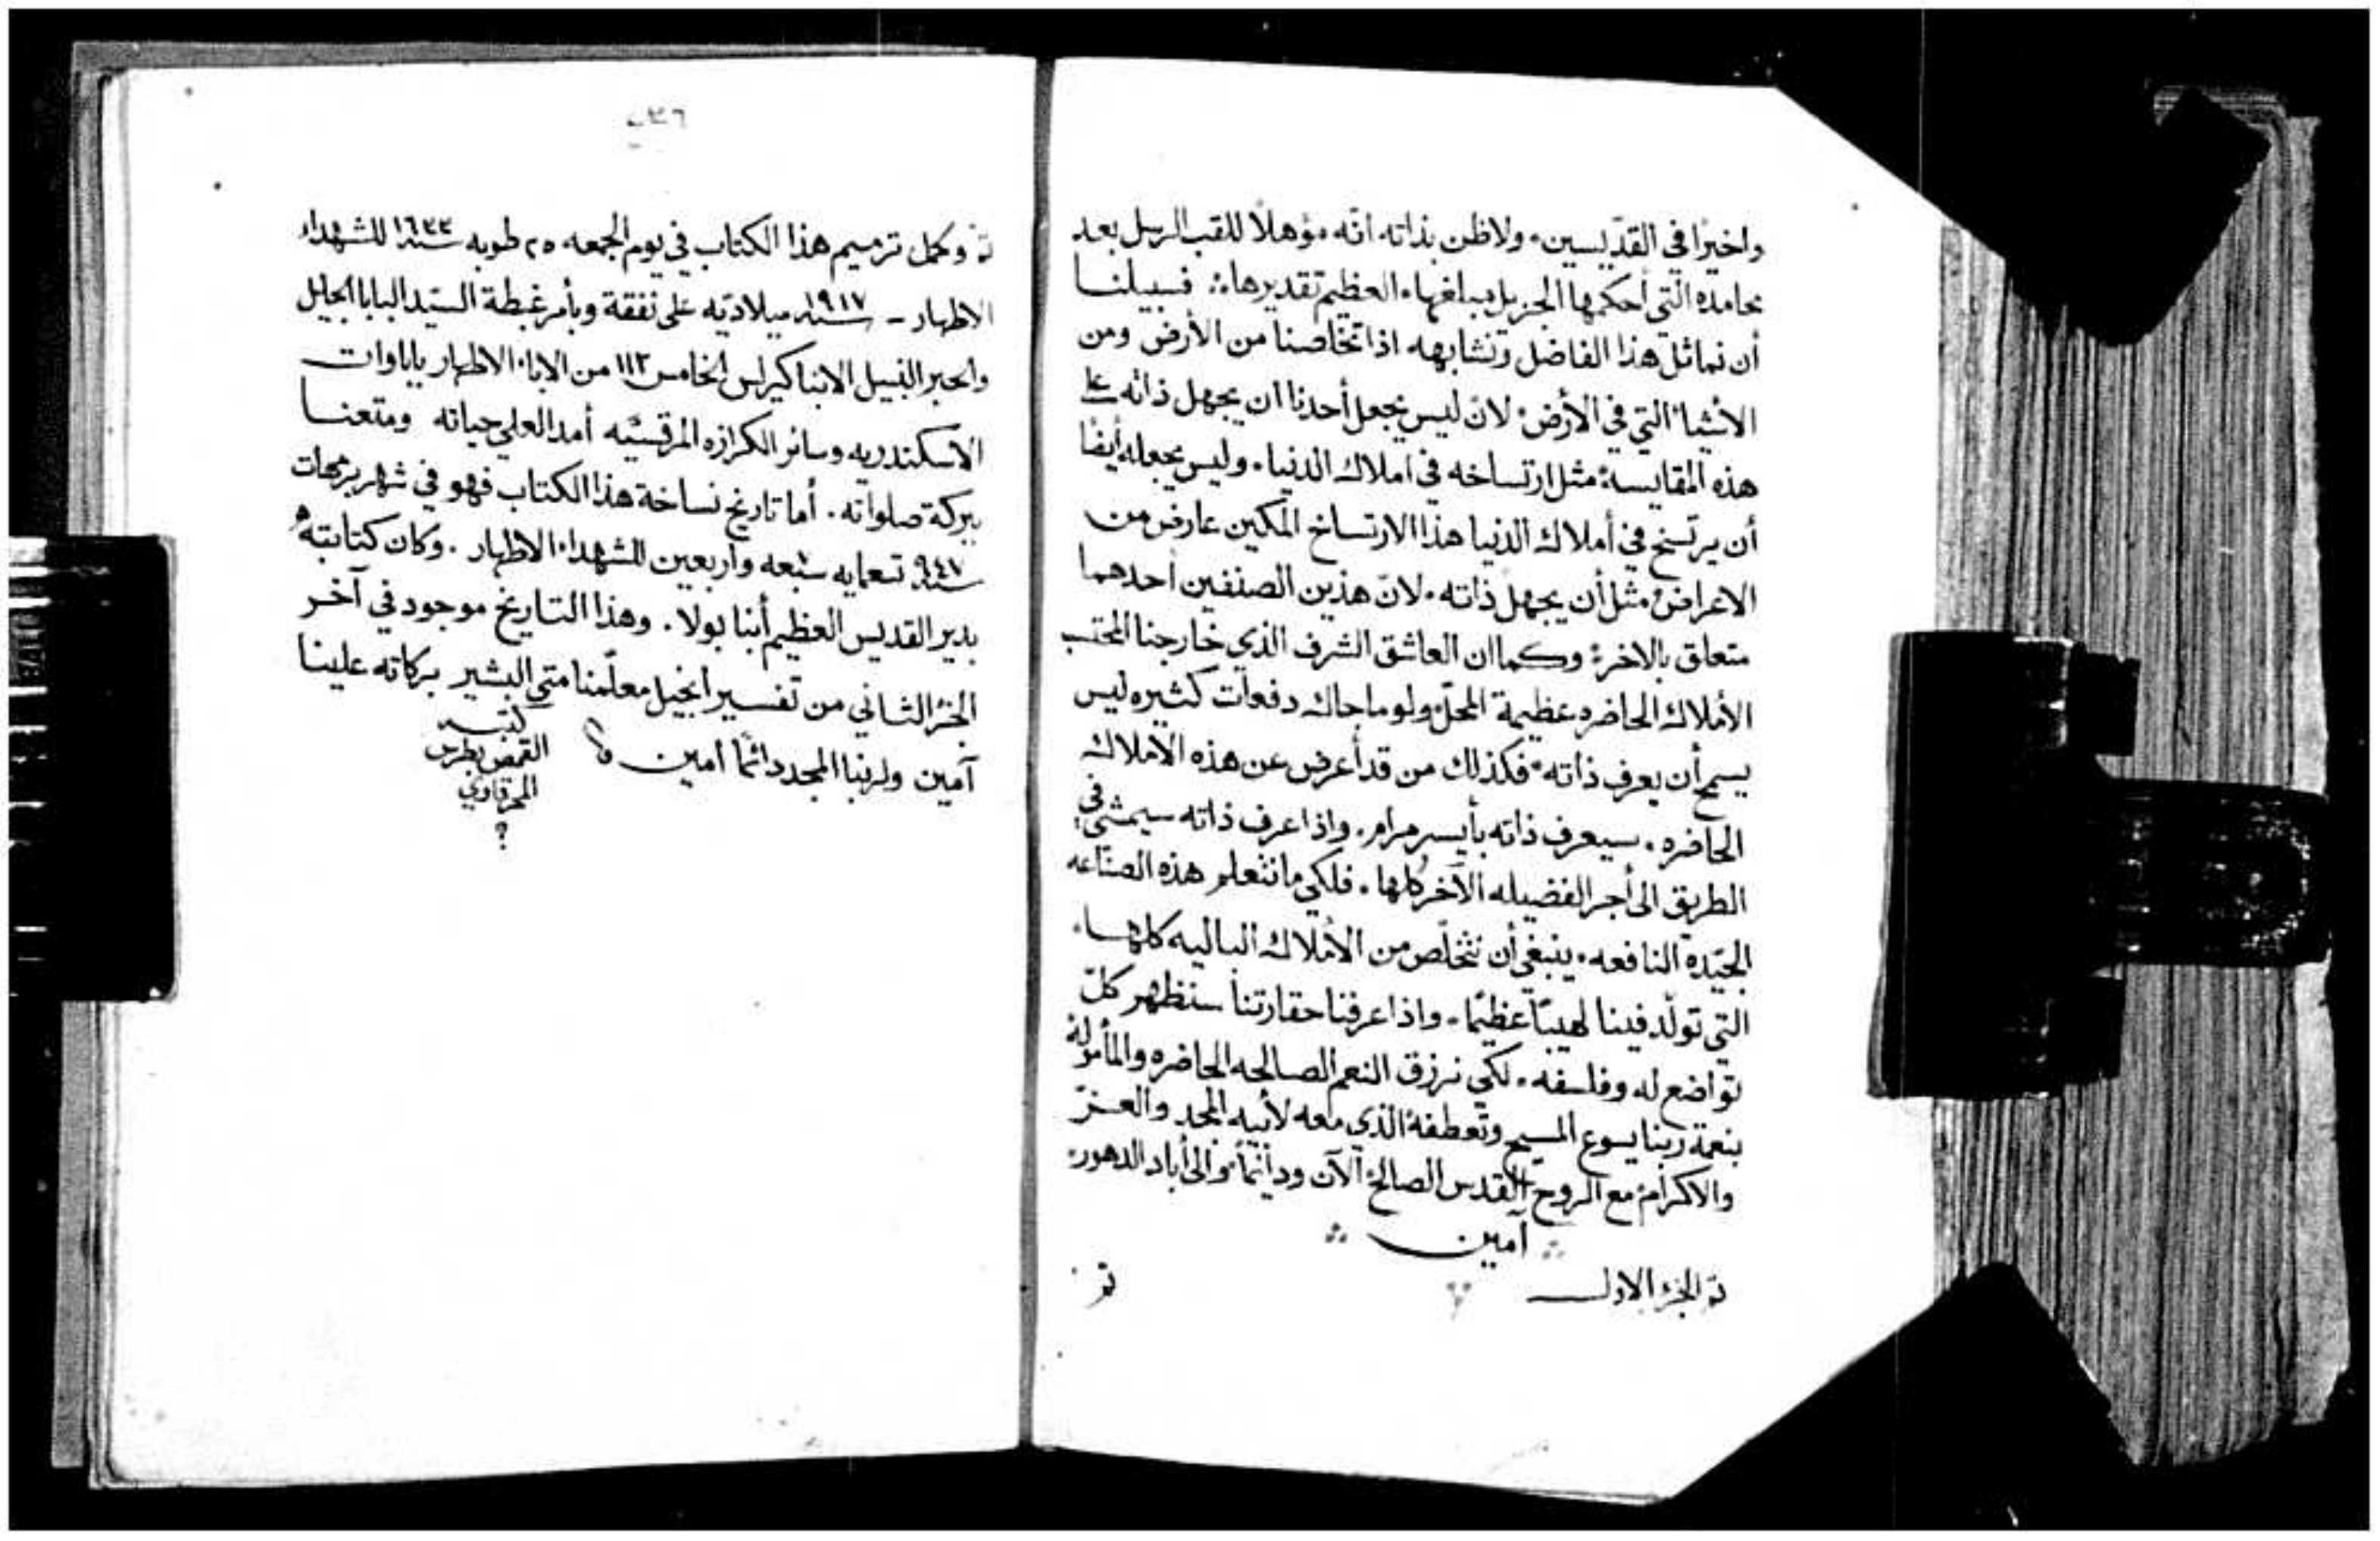 واخيرًا في القدّيسين، ولاظن بذاته انّه مؤهلاً للقب الرسل بعد
محامده الّتي أحكمها الجزيل مبلغها، العظيم تقديرها؞ فسبيلنا
أن نماثل هذا الفاضل ونشابهه اذا تخاصنا من الأرض ومن
الأشياء الّتي في الأرض؛ لان ليس يجعل أحدنا ان يجهل ذاته على
هذه المقايسة مثل ارتساخه في املاك الدنيا، وليس يجعله أيضًا
أن يرتسخ في أملاك الدنيا هذا الارتساخ المكين عارض من
الاعراض مثل أن يجهل ذاته، لانّ هذين الصنفين أحدهما
متعلق بالاخر؛ وكما ان العاشق الشرف الذي خارجنا المحتسب
الأملاك الحاضره عظيمة المحلّ ولو ماحاك دفعات كثيره ليس
يسمح أن يعرف ذاته، فكذلك من قد أعرض عن هذه الأملاك
الحاضره، سيعرف ذاته بأيسر مرام، واذا عرف ذاته سيمشي في
الطريق الى أجر الفضيله الآخر كلها، فلكي ما نتعلم هذه الصنّاعه
الجيّدة النافعه، ينبغي أن نتخلّص من الأملاك الباليه كلها،
التي تولّد فينا لهيبًا عظيمًا، واذا عرفنا حقارتنا سنظهر كلّ
تواضع له وفلسفه، لكي نرزق النعم الصالحه الحاضره والمأموله
بنعمة ربنا يسوع المسيح وتعطفه الذي معه لأبيه المجد والعزّ
والاكرام مع الروح القدس الصالح الآن ودائمًا والى أباد الدهور،
؞ آمين ؞
تم الجزء الاول تم
٢٣٦
تم وكمل ترميم هذا الكتاب في يوم الجمعه ٢٥ طوبه سنة ١٦٣٣ للشهداء
الاطهار - سنة ١٩١٧ ميلاديّه على نفقة وبأمر غبطة السيّد البابا الجليل
والحبر النبيل الانبا كيرلس الخامس ١١٢ من الاباء الاطهار باباوات
الاسكندريه وسائر الكرازه المرقسيّه أمد العلي حياته ومتعنا
ببركة صلواته. أما تاريخ نساخة هذا الكتاب فهو في شهر برمهات
سنة ٩٤٧ تسعمايه سبعه وأربعين للشهداء الاطهار. وكان كتابته
بدير القديس العظيم أنبا بولا. وهذا التاريخ موجود في آخر
الجزء الثاني من تفسير انجيل معلّمنا متي البشير بركاته علينا
آمين ولربنا المجد دائمًا امين
كتبه
القمص بطرس
المحرقاوي
؟